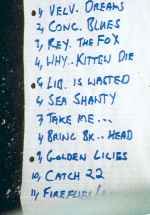 4 VELV. DREAMS
2, CONC. BLUES
3, REY. THE FOX
4, WHY.. KITTEN DIE
LID. IS WASTED
4 SEA SHANTY
7 TAKE ME...
4 BRING BK.. HEAD
9 GOLDEN LILIES
10, CATCH 22
11, FIREFLIES